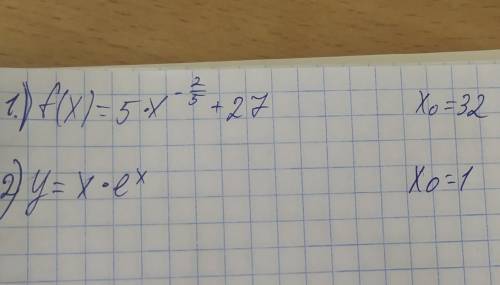 1.) f(x) = 5·x^(-2/5) + 27 x₀ = 32
2) y = x·eˣ x₀ = 1